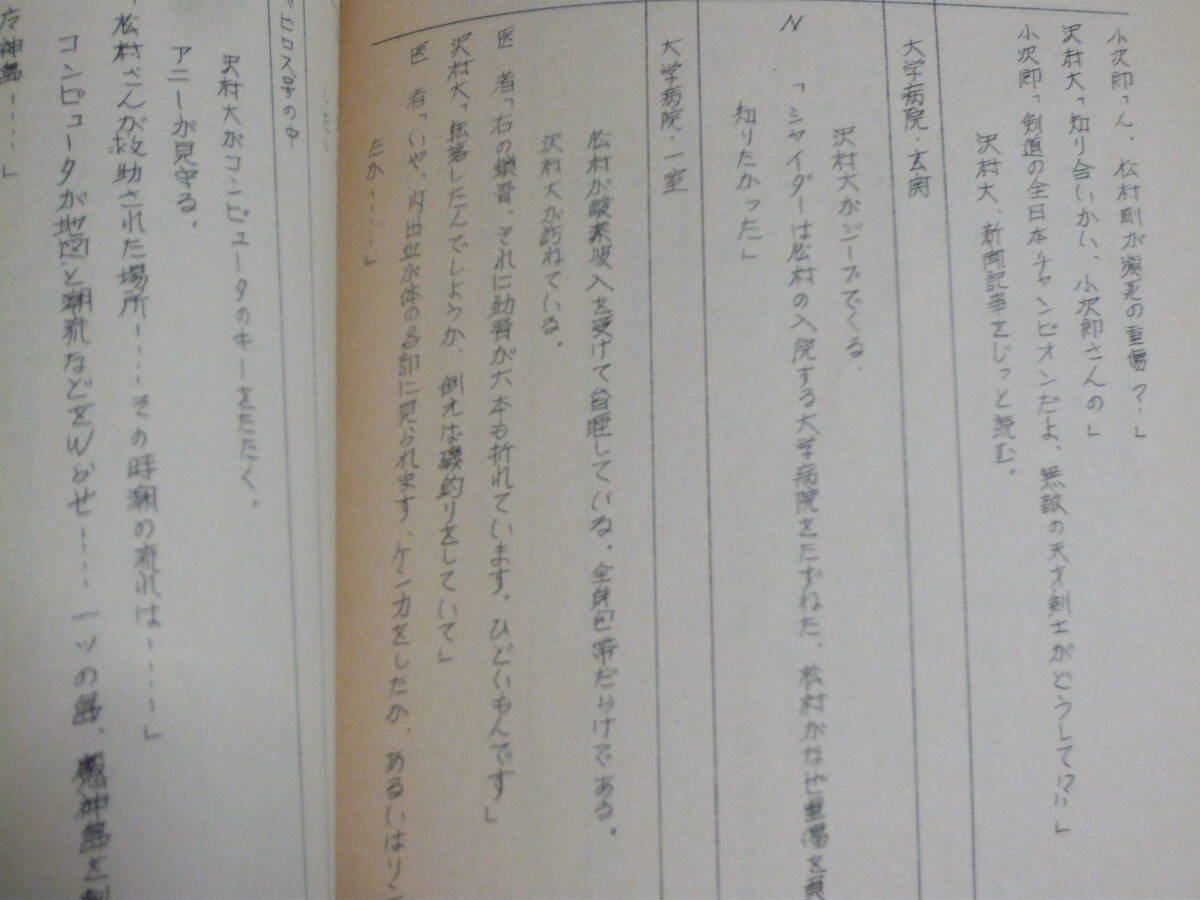 小次郎「ん、松村剛が瀕死の重傷？――」
沢村大「知り合いかい、小次郎さんの」
小次郎「剣道の全日本チャンピオンだよ、無敵の天才剣士がどうして!?」
沢村大、新聞記事をじっと読む。
大学病院・玄関
沢村大がジープでくる。
N「シャイダーは松村の入院する大学病院をたずねた、松村がなぜ重傷を負
知りたかった」
大学病院・一室
松村が酸素吸入を受けて昏睡している。全身包帯だらけである。
沢村大が訪ねている。
医　者「右の鎖骨、それに肋骨が六本も折れています。ひどいもんです」
沢村大「転落したんでしょうか、例えば磯釣りをしていて」
医　者「いや、内出血が体の各部に見られます、ケンカをしたか、あるいはリン
たか……」
ビロス号の中
沢村大がコンピュータのキーをたたく。
アニーが見守る。
松村さんが救助された場所……その時潮の流れは……」
コンピュータが地図と潮流などをWらせ……一ツの島、鬼神島を
神島……」